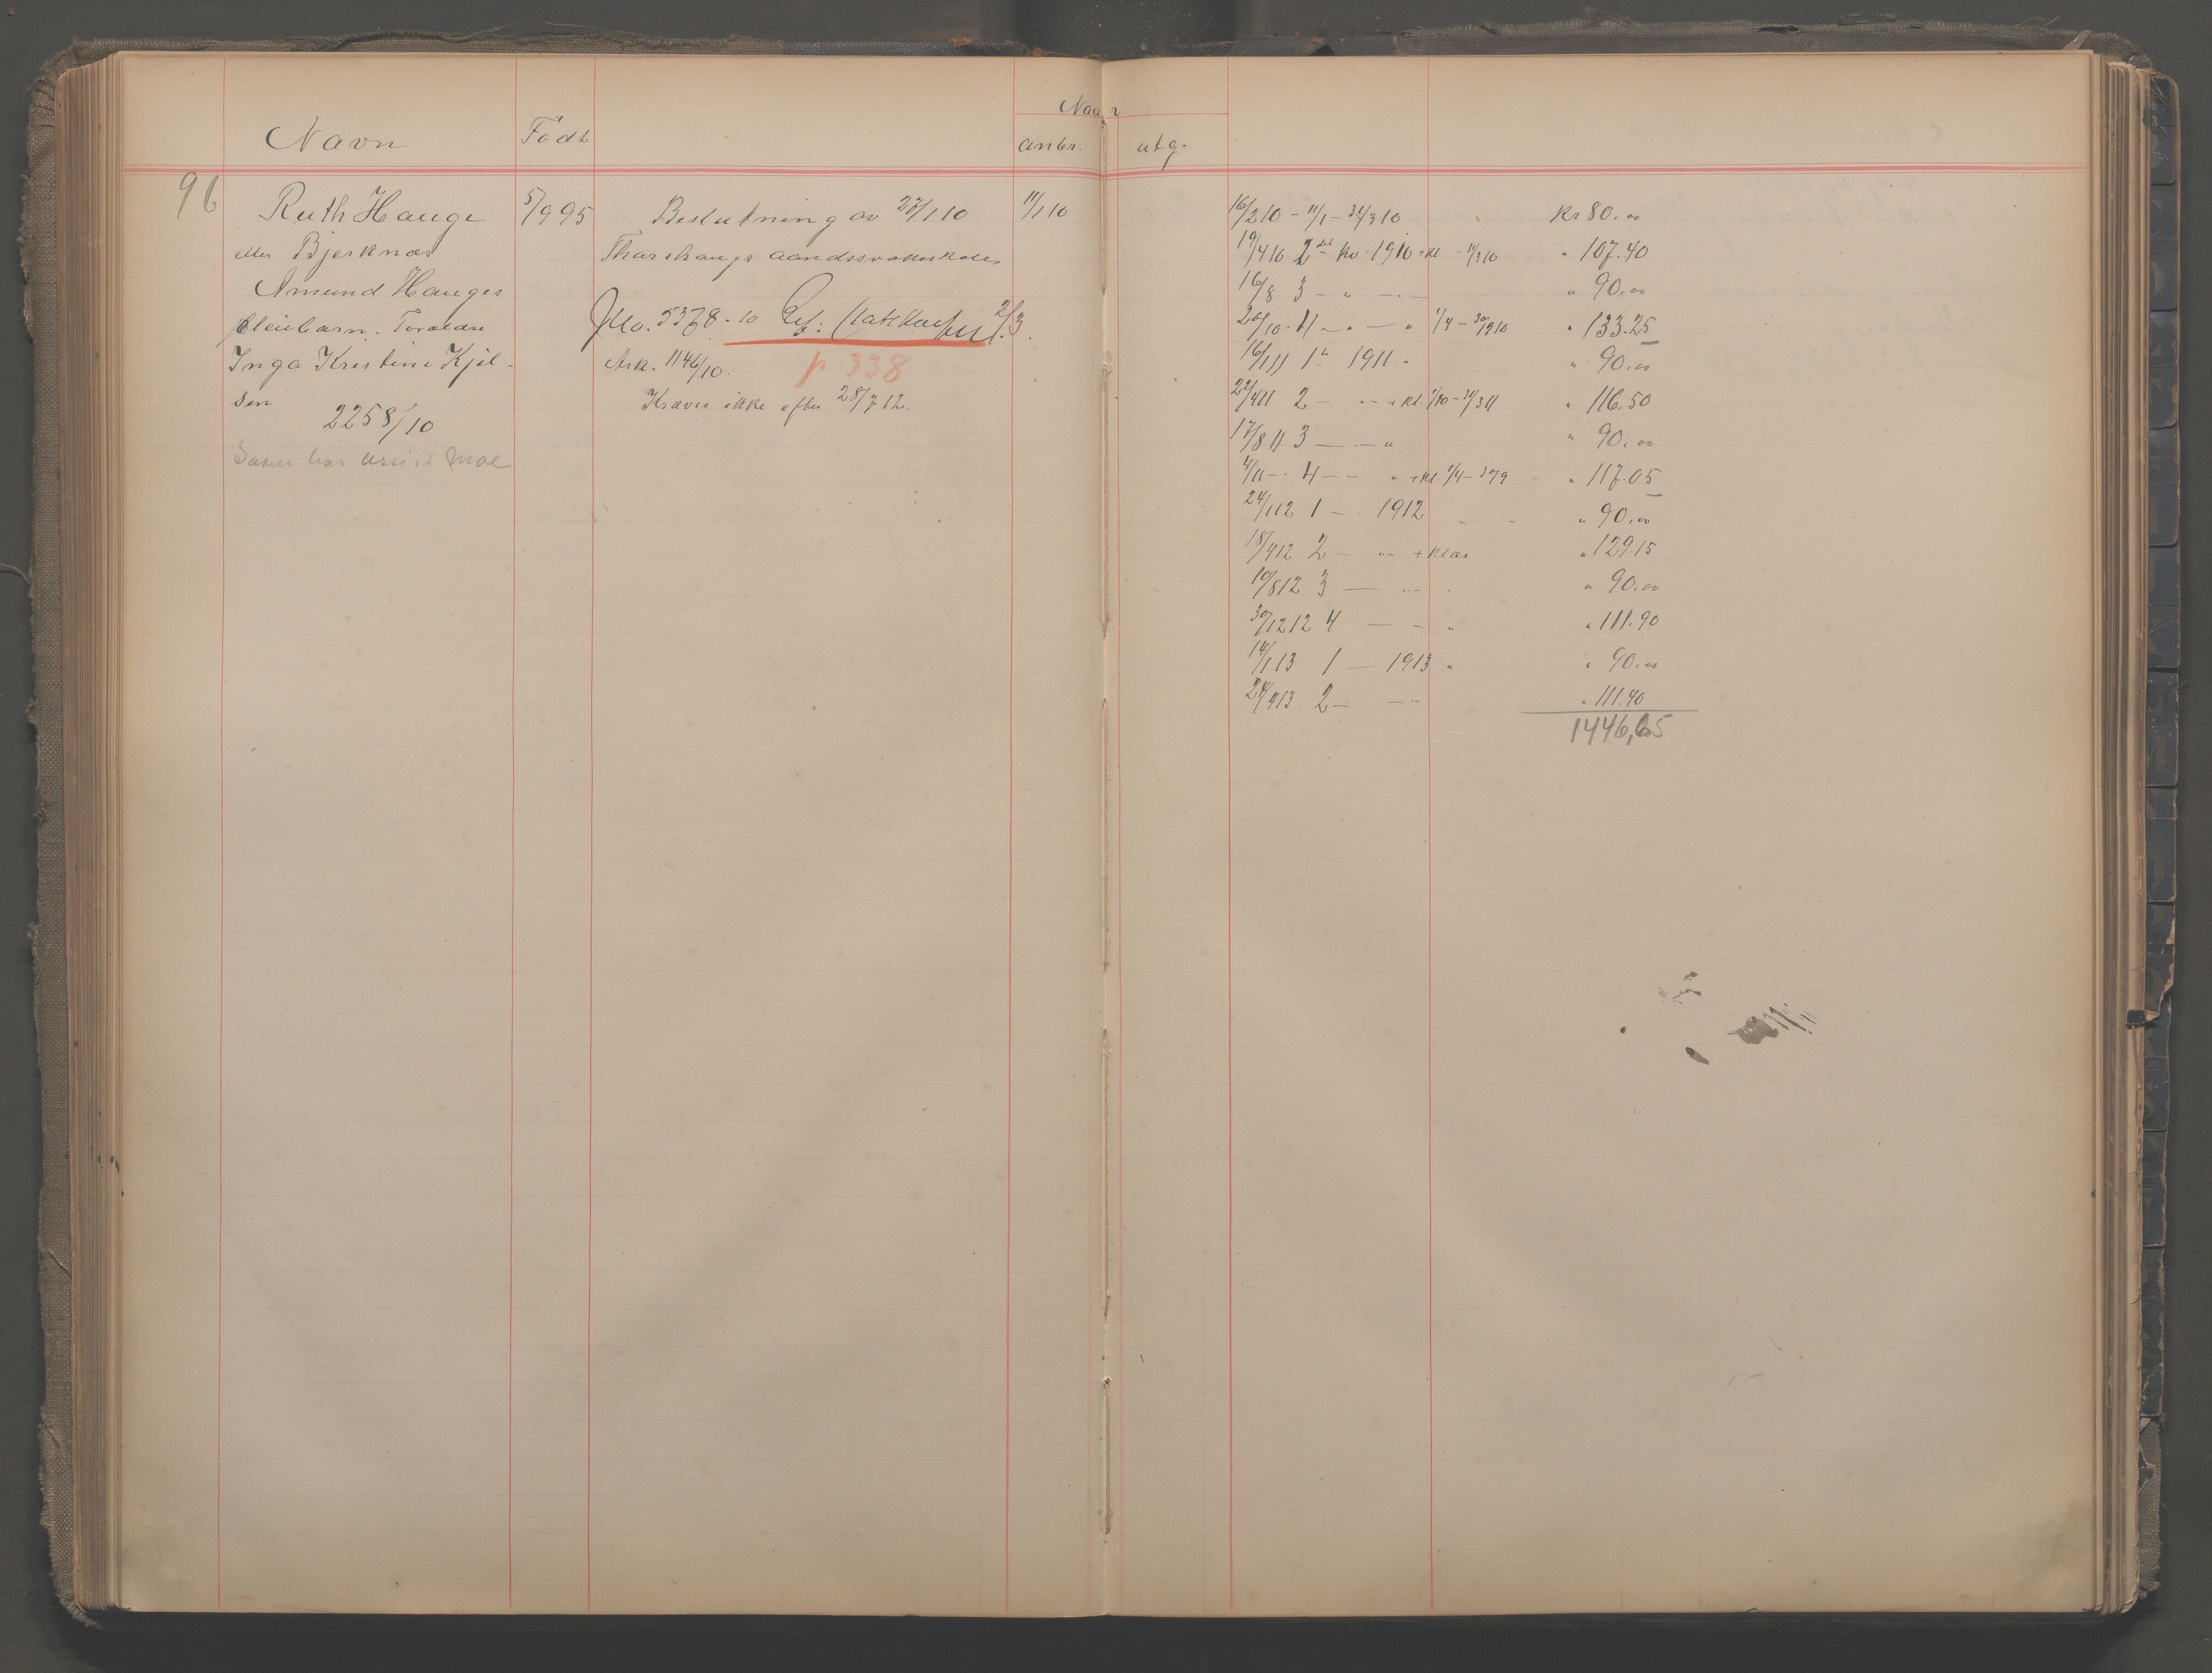 Navn Født Naar
anbr. utg.
96
Ruth Hauge 5/9 95
eller Bjerknæs
Amund Hauges
pleiebarn. Forældre
Inga Kristine Kjel-
sen
2258/10
Saken hos assist Moe
Beslutning av 27/1 10 11/1 10
Thorshaugs aandssvakeskole
Jno. 5378-10 2/3.
Ark. 1146/10. p 338
Kræves ikke efter 28/7 12.
16/2 10 - 11/1 - 31/3 10 kr 80.00
19/4 10 2det kv. 1910 + kl - 31/3 10 " 107.40
16/8 3 - " - " 90.00
20/10. 4 - " - " 1/4 - 30/9 10 " 133.25
16/1 11 1te 1911 " " 90.00
22/4 11 2 - " + kl. 1/10 - 31/3 11 " 116.50
17/8 11 3 - " " 90.00
4/11 - 4 - - " + kl 1/4 - 30/9 - " 117.05
24/1 12 1 - 1912 " 90.00
18/4 12 2 - " + klær " 129.15
10/8 12 3 - " " 90.00
30/12 12 4 - - " " 111.90
14/1 13 1 - 1913 " " 90.00
24/4 13 2 - - " " 111.40
1446,65